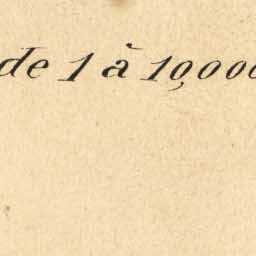 de 1 à 10,000